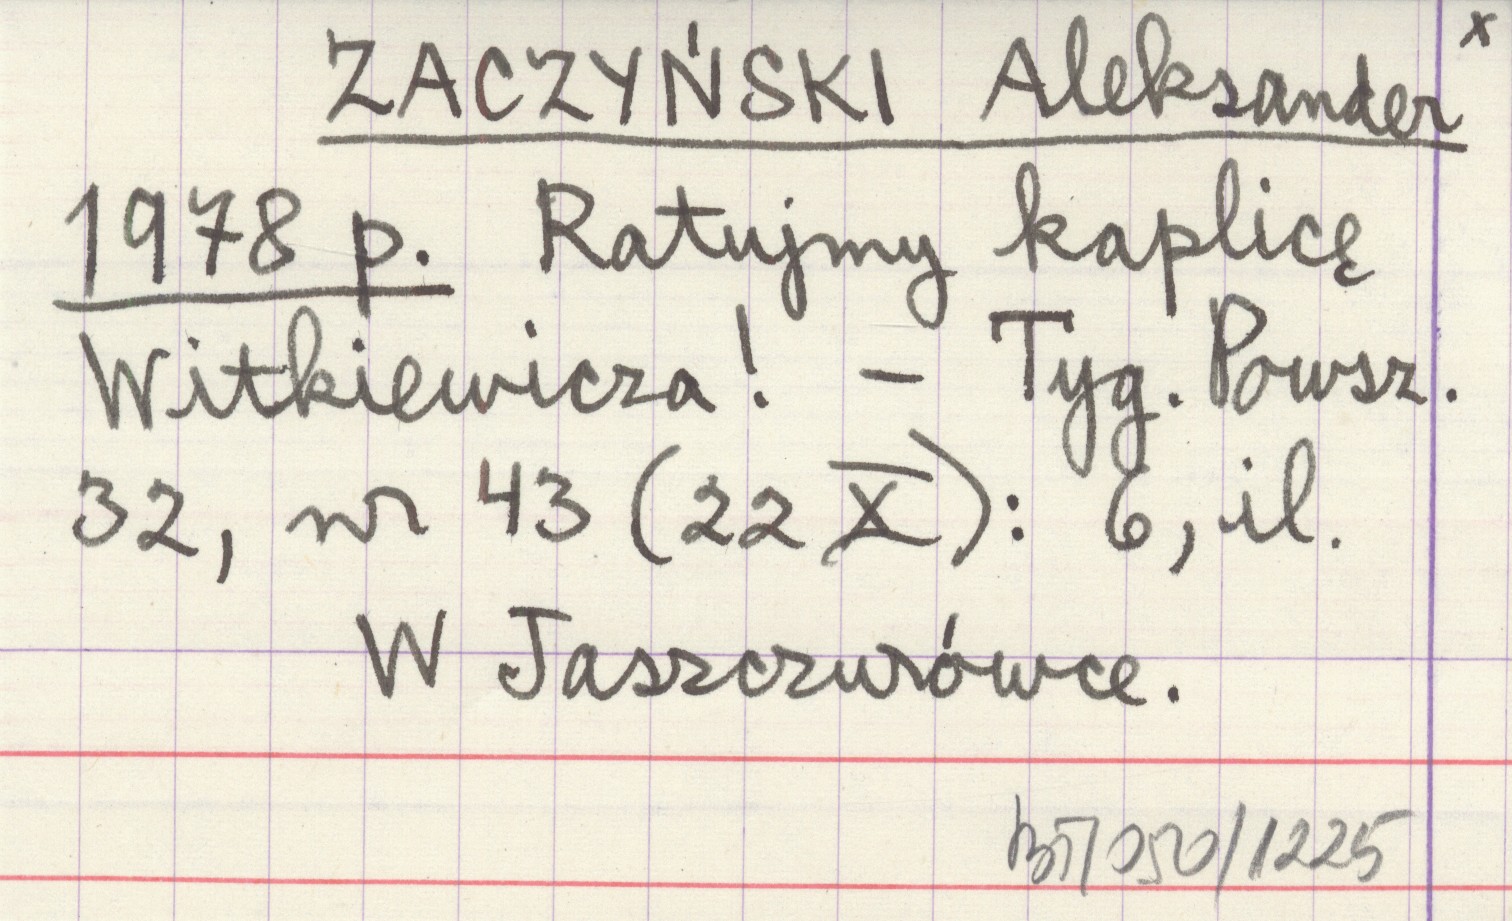 x
ZACZYŃSKI Aleksander
1978 p. Ratujmy kaplicę
Witkiewicza! - Tyg. Powsz.
32, nr 43 (22 X): 6, il.
W Jaszczurówce.
BT/050/1225